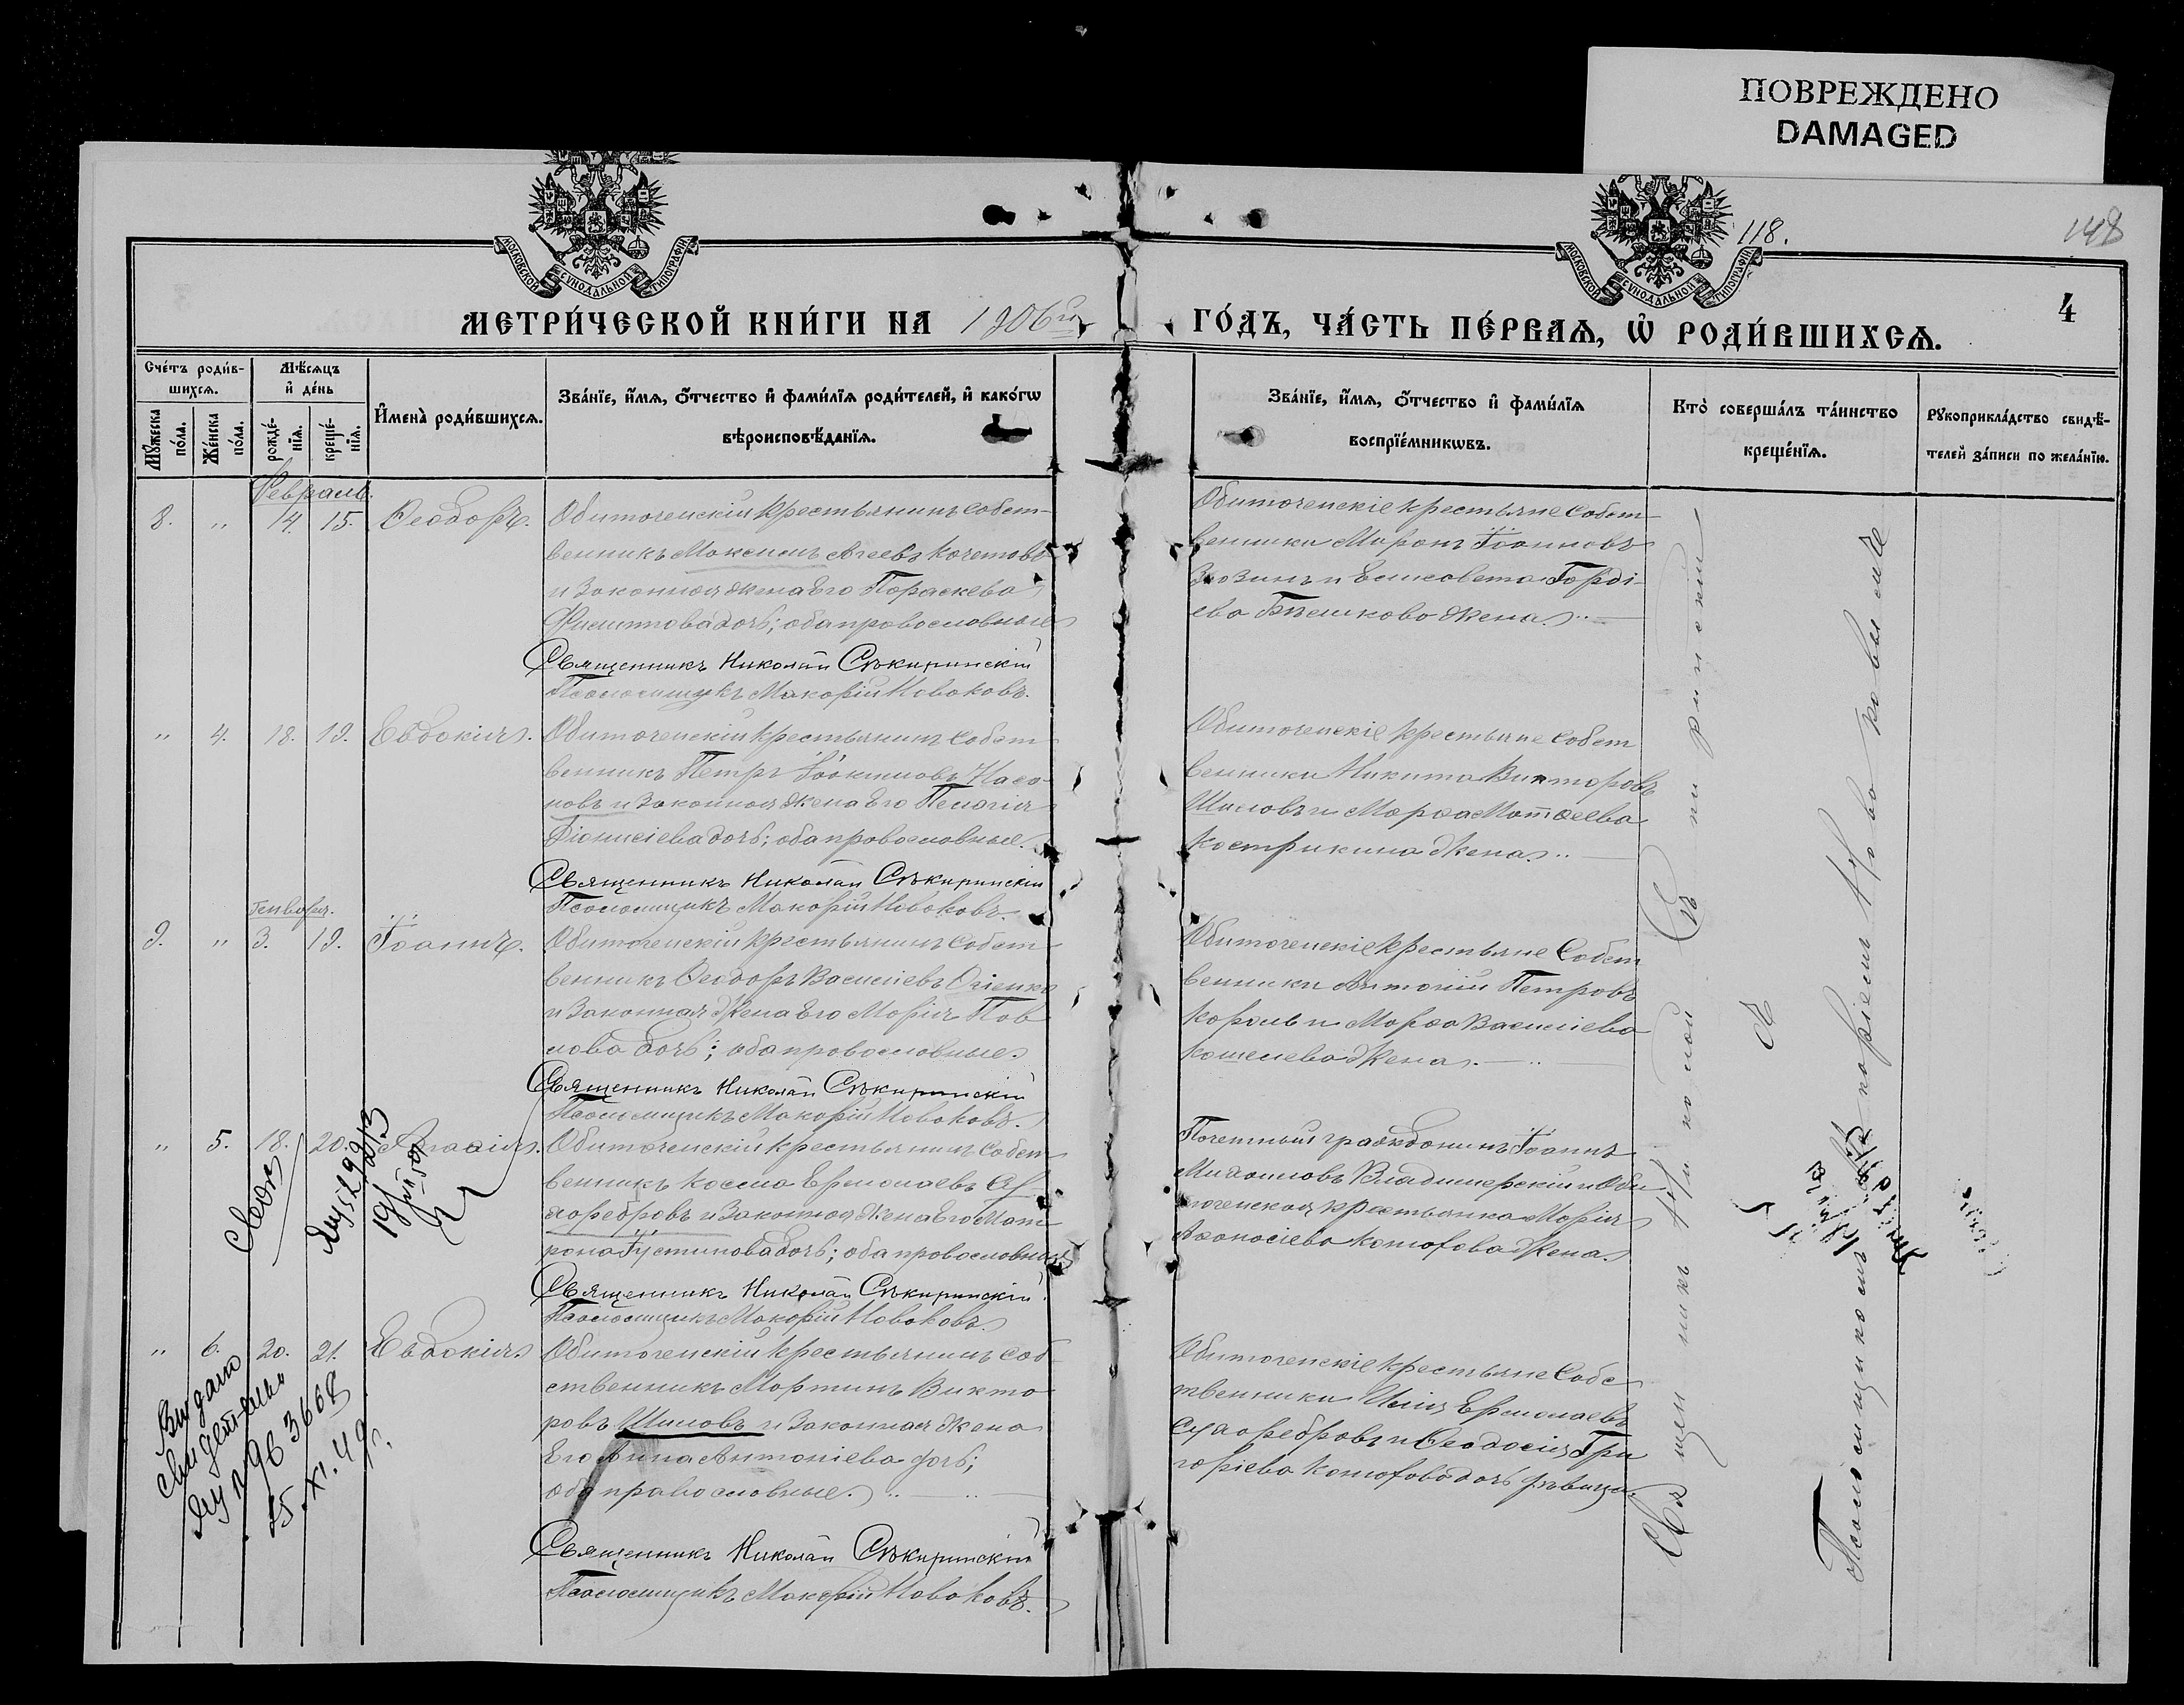 ПОВРЕЖДЕНО
DAMAGED
МОСКОВСКОЙ СѴНОДАЛЬНОЙ ТИПОГРАФІИ
МОСКОВСКОЙ СѴНОДАЛЬНОЙ ТИПОГРАФІИ
118.
148
4
МЕТРИ́ЧЕСКОЙ КНИ́ГИ НА 1906й
ГО́ДЪ, ЧА́СТЬ ПЕ́РВАѦ, Ѿ РОДИ́ВШИХСѦ.
Сче́тъ роди́в-
шихсѧ.
Мꙋ́жеска по́ла.
Же́нска по́ла.
Мѣ́сѧцъ
и҆ де́нь
рожде́-
нїѧ.
креще́-
нїѧ.
И҆мена̀ роди́вшихсѧ.
Зва́нїе, и҆́мѧ, ѻ҆́тчество и҆ фами́лїѧ роди́телей, и҆ како́гѡ
вѣроисповѣ́данїѧ.
Зва́нїе, и҆́мѧ, ѻ҆́тчество и҆ фами́лїѧ
воспрїе́мникѡвъ.
Кто̀ соверша́лъ та́инство
креще́нїѧ.
Рꙋкоприкла́дство свидѣ́-
телей за́писи по жела́нїю.
Февраль.
8. „ 14. 15. Ѳеодоръ.
Обиточенскій крестьянинъ собст-
венникъ Максимъ Агеевъ Кочетовъ
и законная жена его Параскева
Филиппова дочь; оба православные
Священникъ Николай Сѣкиринскій
Псаломщикъ Макарій Новаковъ.
Обиточенскіе крестьяне собст
венники Миронъ Іоанновъ
и Елисавета Горді-
ева Бѣшкова жена.
„ 4. 18. 19. Евдокія.
Обиточенскій крестьянинъ собст
венникъ Петръ Іоакимовъ Насо-
новъ и законная жена его Пелагія
Діонисіева дочь; оба православные.
Священникъ Николай Сѣкиринскій
Псаломщикъ Макарій Новаковъ.
Обиточенскіе крестьяне собст
венники Никита Викторовъ
Шиловъ и Марѳа Матѳеева
Кострикина жена.
Генварь.
9. „ 3. 19. Іоаннъ.
Обиточенскій крестьянинъ собст
венникъ Ѳеодоръ Василіевъ Огіенко
и законная жена его Марія Пав
лова дочь; оба православные.
Священникъ Николай Сѣкиринскій
Псаломщикъ Макарій Новаковъ.
Обиточенскіе крестьяне собст
венники Антоній Петровъ
Король и Марѳа Василіева
Кошелева жена.
„ 5. 18. 20. Агаѳія.
Обиточенскій крестьянинъ собст
венникъ Косма Ермолаевъ Су
хоребровъ и законная жена его Мат
рона Іустинова дочь; оба православные
Священникъ Николай Сѣкиринскій
Псаломщикъ Макарій Новаковъ.
Почетный гражданинъ Іоаннъ
Михаиловъ Владимерскій и Оби
точенская крестьянка Марія
Аѳанасіева жена.
„ 6. 20. 21. Евдокія.
Обиточенскій крестьянинъ соб
ственникъ Мартинъ Викто
ровъ Шиловъ и законная жена
его Анна Антоніева дочь;
оба православные.
Священникъ Николай Сѣкиринскій
Псаломщикъ Макарій Новаковъ.
Обиточенскіе крестьяне Собс
твенники Илія Ермолаевъ
Сухоребровъ и Ѳеодосія Гри
горіева дочь дѣвица.
Видано
свидетельство
№ 963608
15.XI.49г.
Священникъ Николай Сѣкиринскій
съ
Псаломщикомъ Макаріемъ Новаковымъ